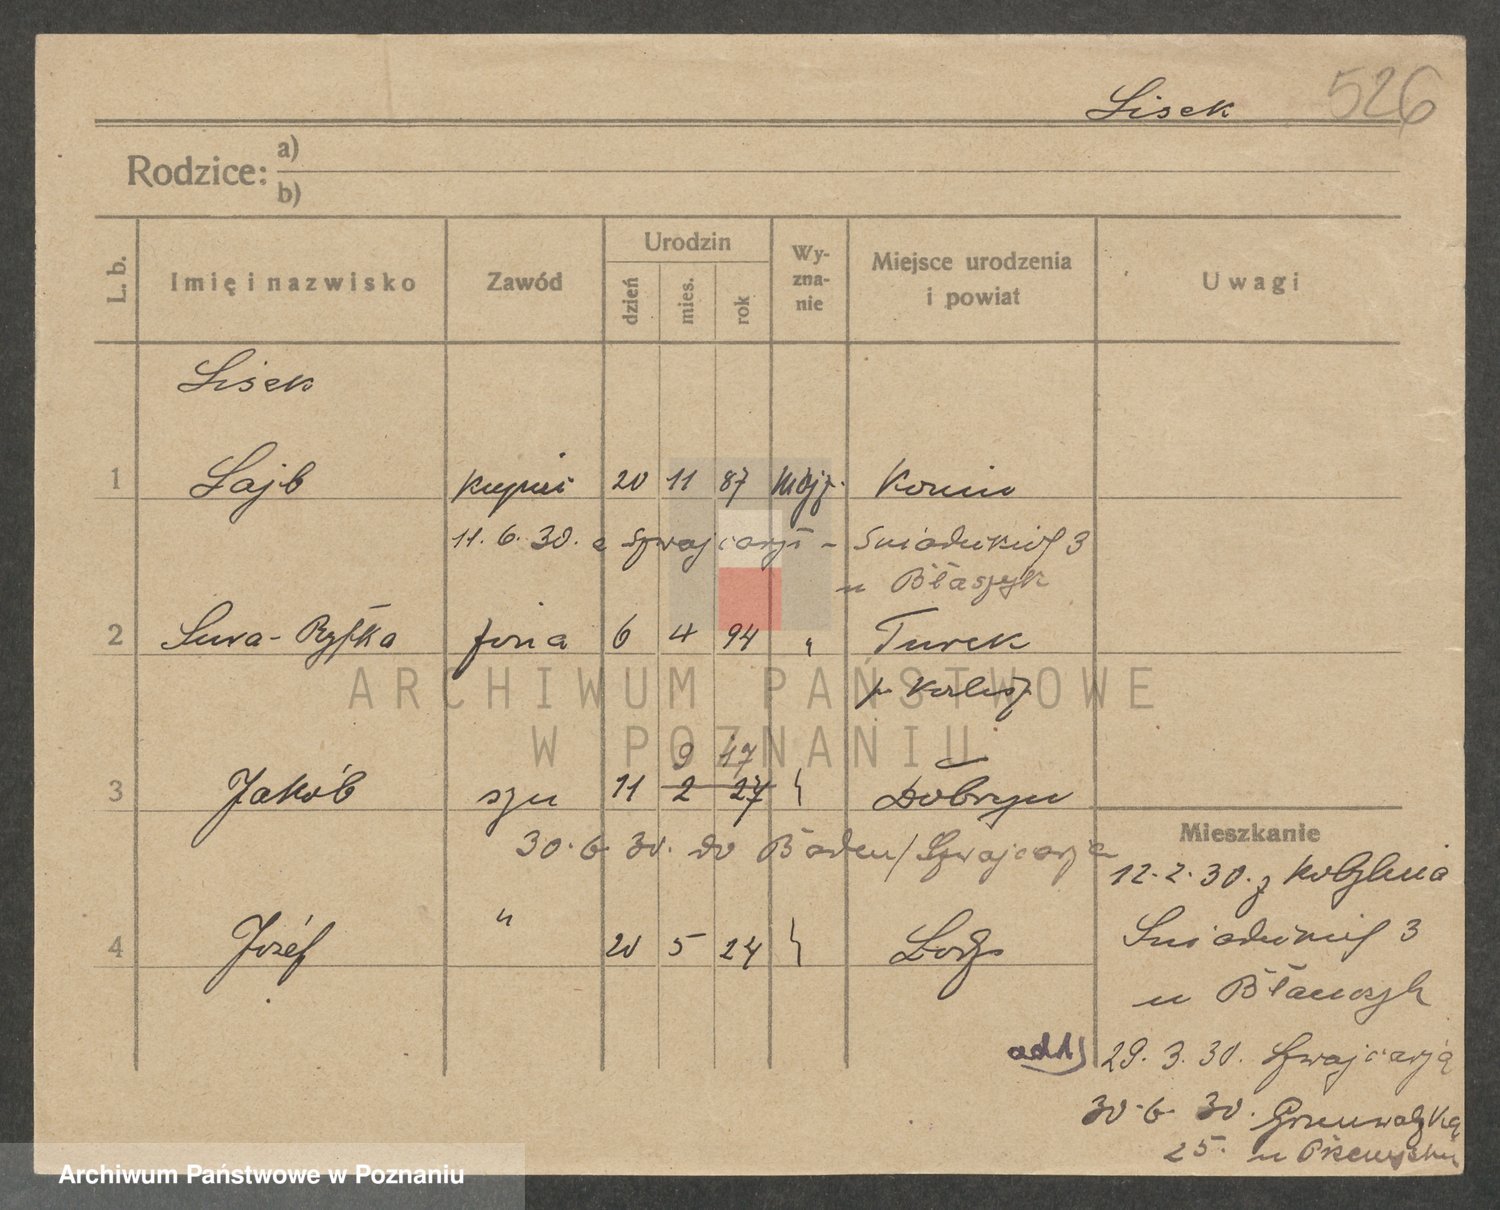 Lisek 526
Rodzice: a)
b)
L. b. Imię i nazwisko Zawód Urodzin dzień mies. rok Wy-zna-nie Miejsce urodzenia i powiat Uwagi
Lisek
1 Lajb kupiec 20 11 87 mojż. Konin
11. 6. 30. z Szwajcarji - Śniadeckich 3
u Błaszyk
2 Sura - Ryfka żona 6 4 94 " Turek
p. Kalisz
9 17
3 Jakób syn 11 2 27 Dobrzyń
Mieszkanie
30. 6. 30. do Baden / Szwajcarja
12. 2. 30. z
4 Józef " 20 5 24 Łódź
Śniadeckich 3
u Błaszyk
ad 1) 29. 3. 30. Szwajcarja
30. 6. 30. Grunwaldzka
25. u
ARCHIWUM PAŃSTWOWE
W POZNANIU
Archiwum Państwowe w Poznaniu